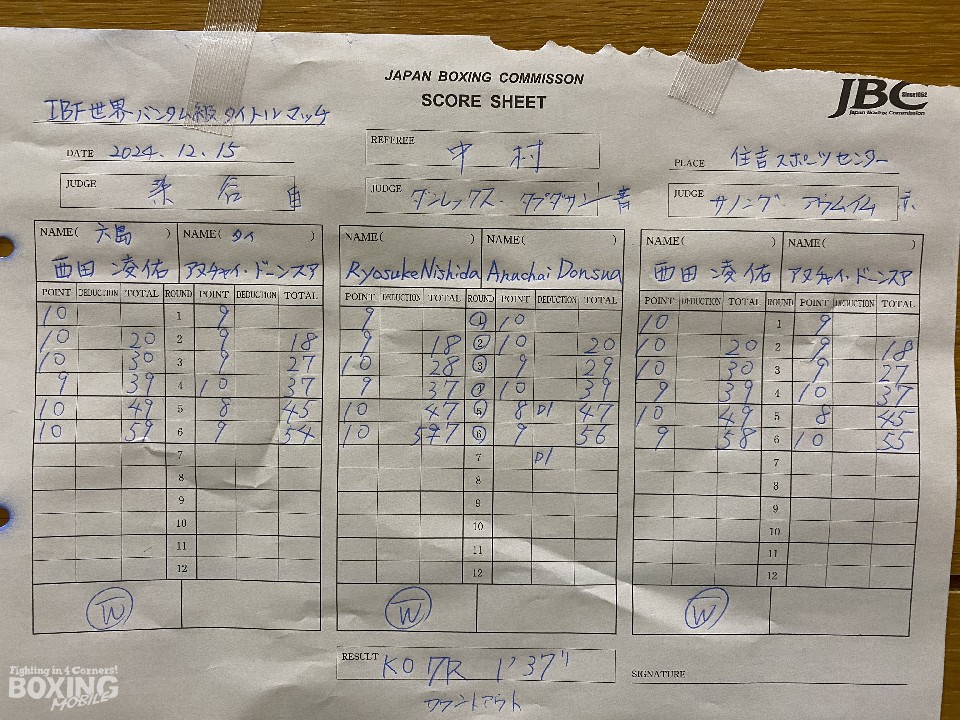 JAPAN BOXING COMMISSON
SCORE SHEET
JBC Since1952
Japan Boxing Commission
IBF世界バンタム級タイトルマッチ
DATE 2024.12.15
REFEREE 中村
PLACE 住吉スポーツセンター
JUDGE
JUDGE ダンレックス・タプダサン
JUDGE サノング・アウムイム
NAME( 六島 ) NAME( タイ ) NAME( ) NAME( ) NAME( ) NAME( )
西田凌佑 アヌチャイ・ドーンスア Ryosuke Nishida Anuchai Donsua 西田凌佑 アヌチャイ・ドーンスア
POINT DEDUCTION TOTAL ROUND POINT DEDUCTION TOTAL POINT DEDUCTION TOTAL ROUND POINT DEDUCTION TOTAL POINT DEDUCTION TOTAL ROUND POINT DEDUCTION TOTAL
10 1 9 9 1 10 10 1 9
10 20 2 9 18 9 18 2 10 20 10 20 2 9 18
10 30 3 9 27 10 28 3 9 29 10 30 3 9 27
9 39 4 10 37 9 37 4 10 39 9 39 4 10 37
10 49 5 8 45 10 47 5 8 D1 47 10 49 5 8 45
10 59 6 9 54 10 57 6 9 56 9 58 6 10 55
7 7 D1 7
8 8 8
9 9 9
10 10 10
11 11 11
12 12 12
W W W
RESULT KO 7R 1'37"
カウントアウト
SIGNATURE
Fighting in 4 Corners!
BOXING
MOBILE